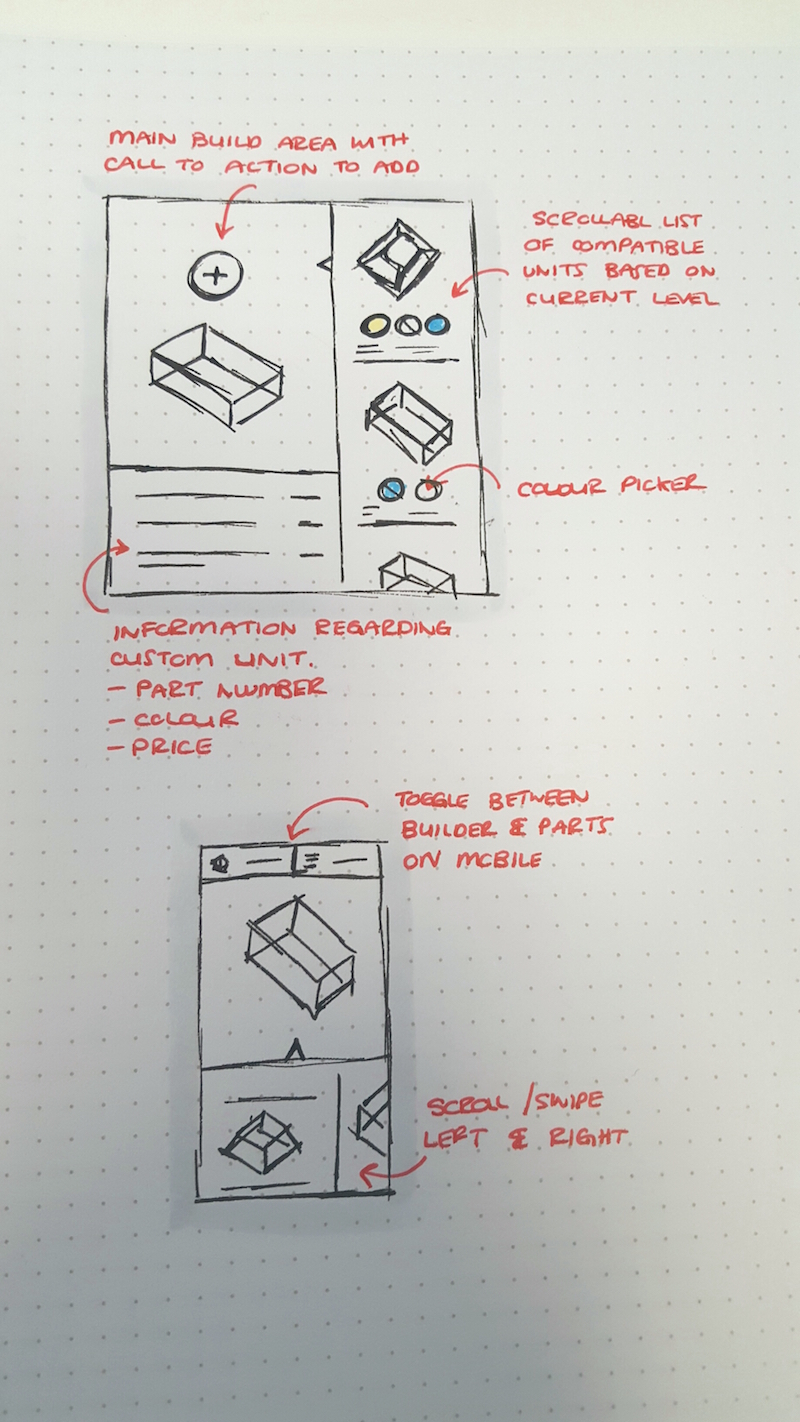 MAIN BUILD AREA WITH
CALL TO ACTION TO ADD
SCROLLABL LIST
OF COMPATIBLE
UNITS BASED ON
CURRENT LEVEL
COLOUR PICKER
INFORMATION REGARDING
CUSTOM UNIT.
- PART NUMBER
- COLOUR
- PRICE
TOGGLE BETWEEN
BUILDER & PARTS
ON MOBILE
SCROLL /SWIPE
LEFT & RIGHT